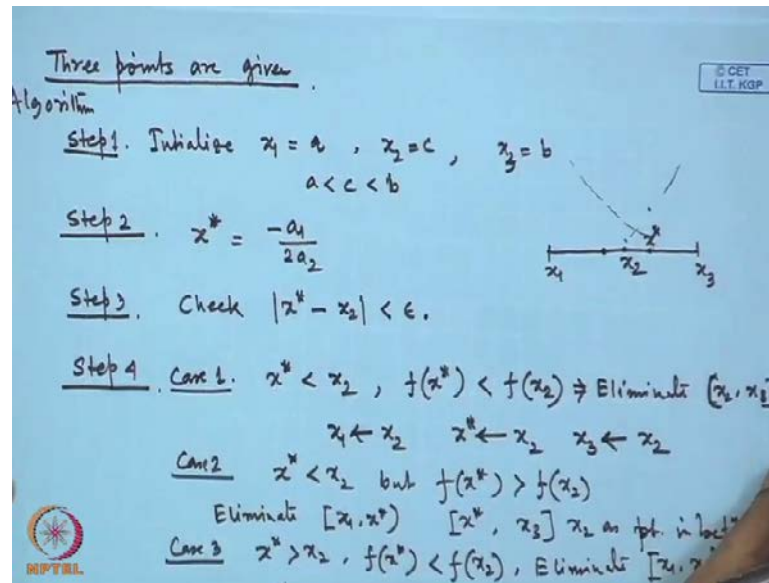 Three points are given.
© CET
I.I.T. KGP
Algorithm
Step 1. Intialize x₁ = a , x₂ = c , x₃ = b
a < c < b
Step 2. x* = -a₁ / 2a₂
x*
x₁ x₂ x₃
Step 3. Check |x* - x₂| < ε.
Step 4. Case 1. x* < x₂ , f(x*) < f(x₂) ⇒ Eliminate [x₂, x₃]
x₁ ← x₂ x* ← x₂ x₃ ← x₂
Case 2 x* < x₂ but f(x*) > f(x₂)
Eliminate [x₁, x*) [x*, x₃] x₂ as pt. in
Case 3 x* > x₂ , f(x*) < f(x₂) , Eliminate [x₁,
NPTEL